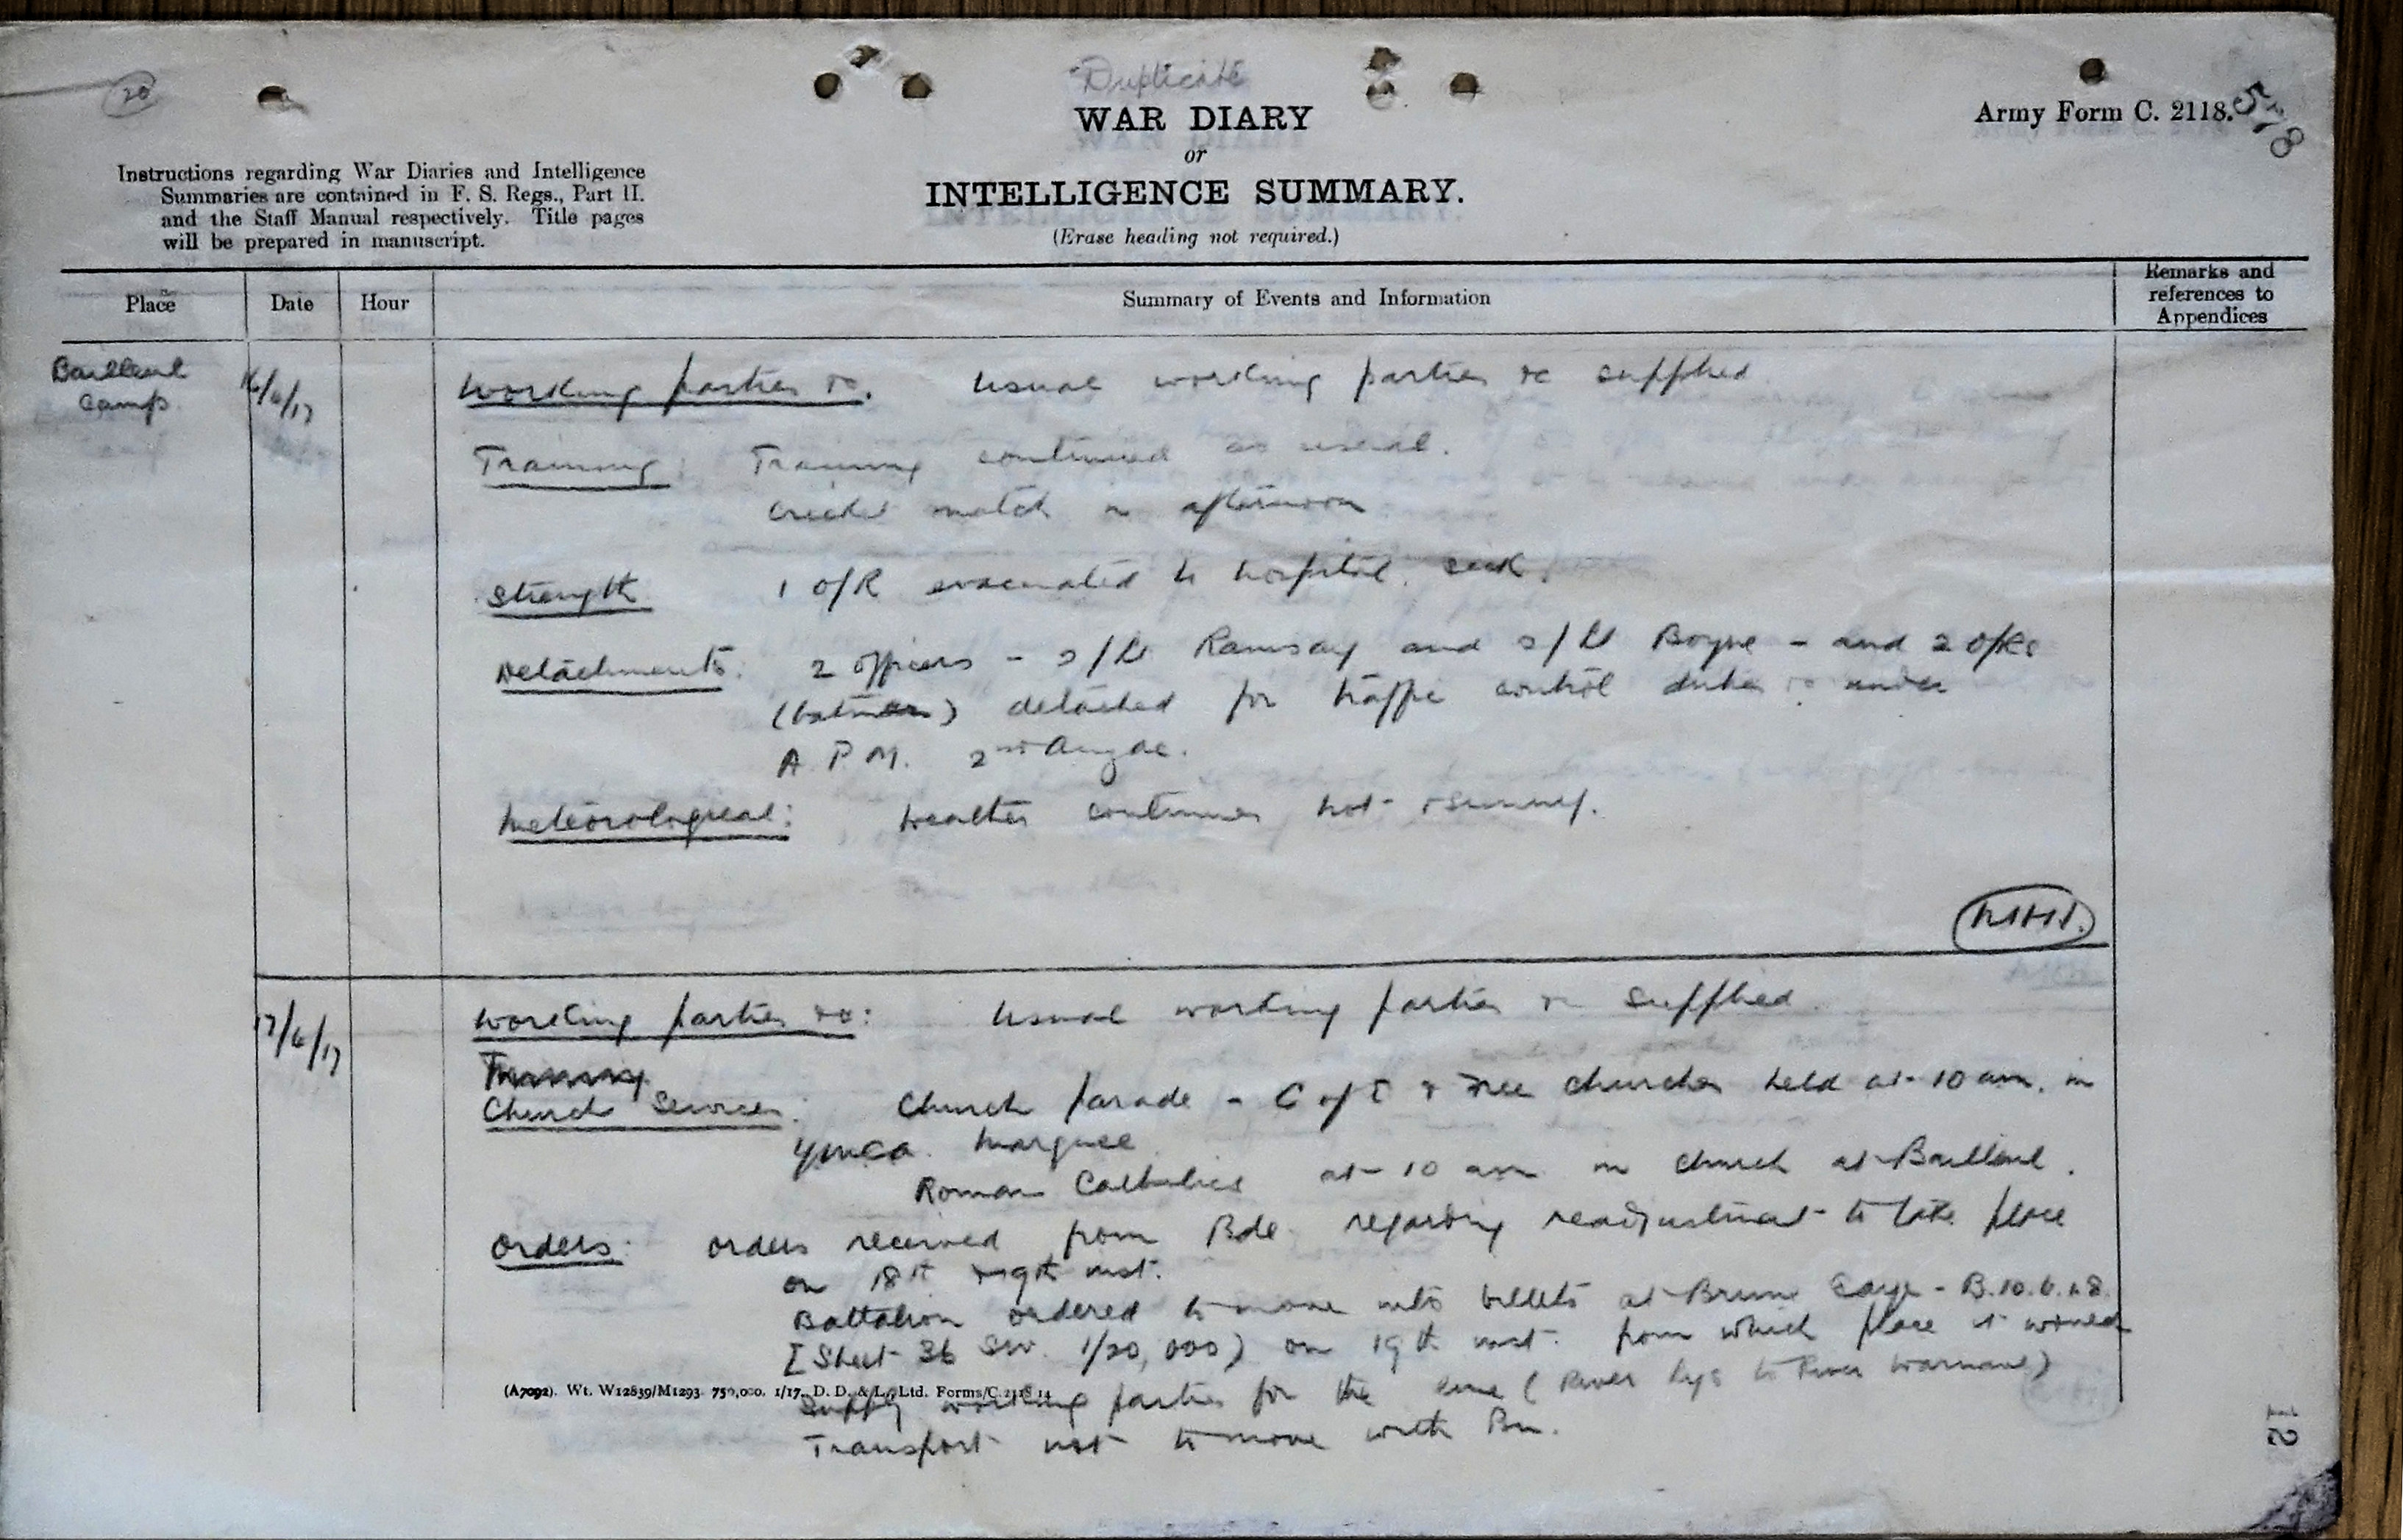 20
Duplicate
WAR DIARY
or
INTELLIGENCE SUMMARY.
(Erase heading not required.)
Army Form C. 2118.
578
Instructions regarding War Diaries and Intelligence
Summaries are contained in F. S. Regs., Part II.
and the Staff Manual respectively. Title pages
will be prepared in manuscript.
Place Date Hour Summary of Events and Information Remarks and
references to
Appendices
Bailleul
Camp
16/6/17
Working parties &c. Usual working parties &c supplied
Training: Training continued as usual.
Cricket match in afternoon
Strength 1 O/R evacuated to hospital. sick.
Detachments: 2 officers - 2/Lt Ramsay and 2/Lt Boyne - and 2 O/Rs
(batmen) detached for traffic control duties &c under
A.P.M. 2nd Anzac.
Meteorological: Weather continues hot & sunny.
17/6/17
Working parties &c: Usual working parties &c supplied.
Training
Church Services: Church parade - C of E & Free Churches held at 10 am. in
YMCA. Marquee
Roman Catholics at 10 am in church at Bailleul.
Orders: Orders received from Bde regarding readjustment to take place
on 18th & 19th inst.
Battalion ordered to move into billets at Brune Gaye - B.10.b.
[Sheet 36 S.W. 1/20,000) on 19th inst. from which place it would
supply working parties for the line (River Lys to River Warnave)
Transport not to move with Bn.
(A7092). Wt. W12839/M1293. 750,000. 1/17. D. D. & L., Ltd. Forms/C.2118.14
12